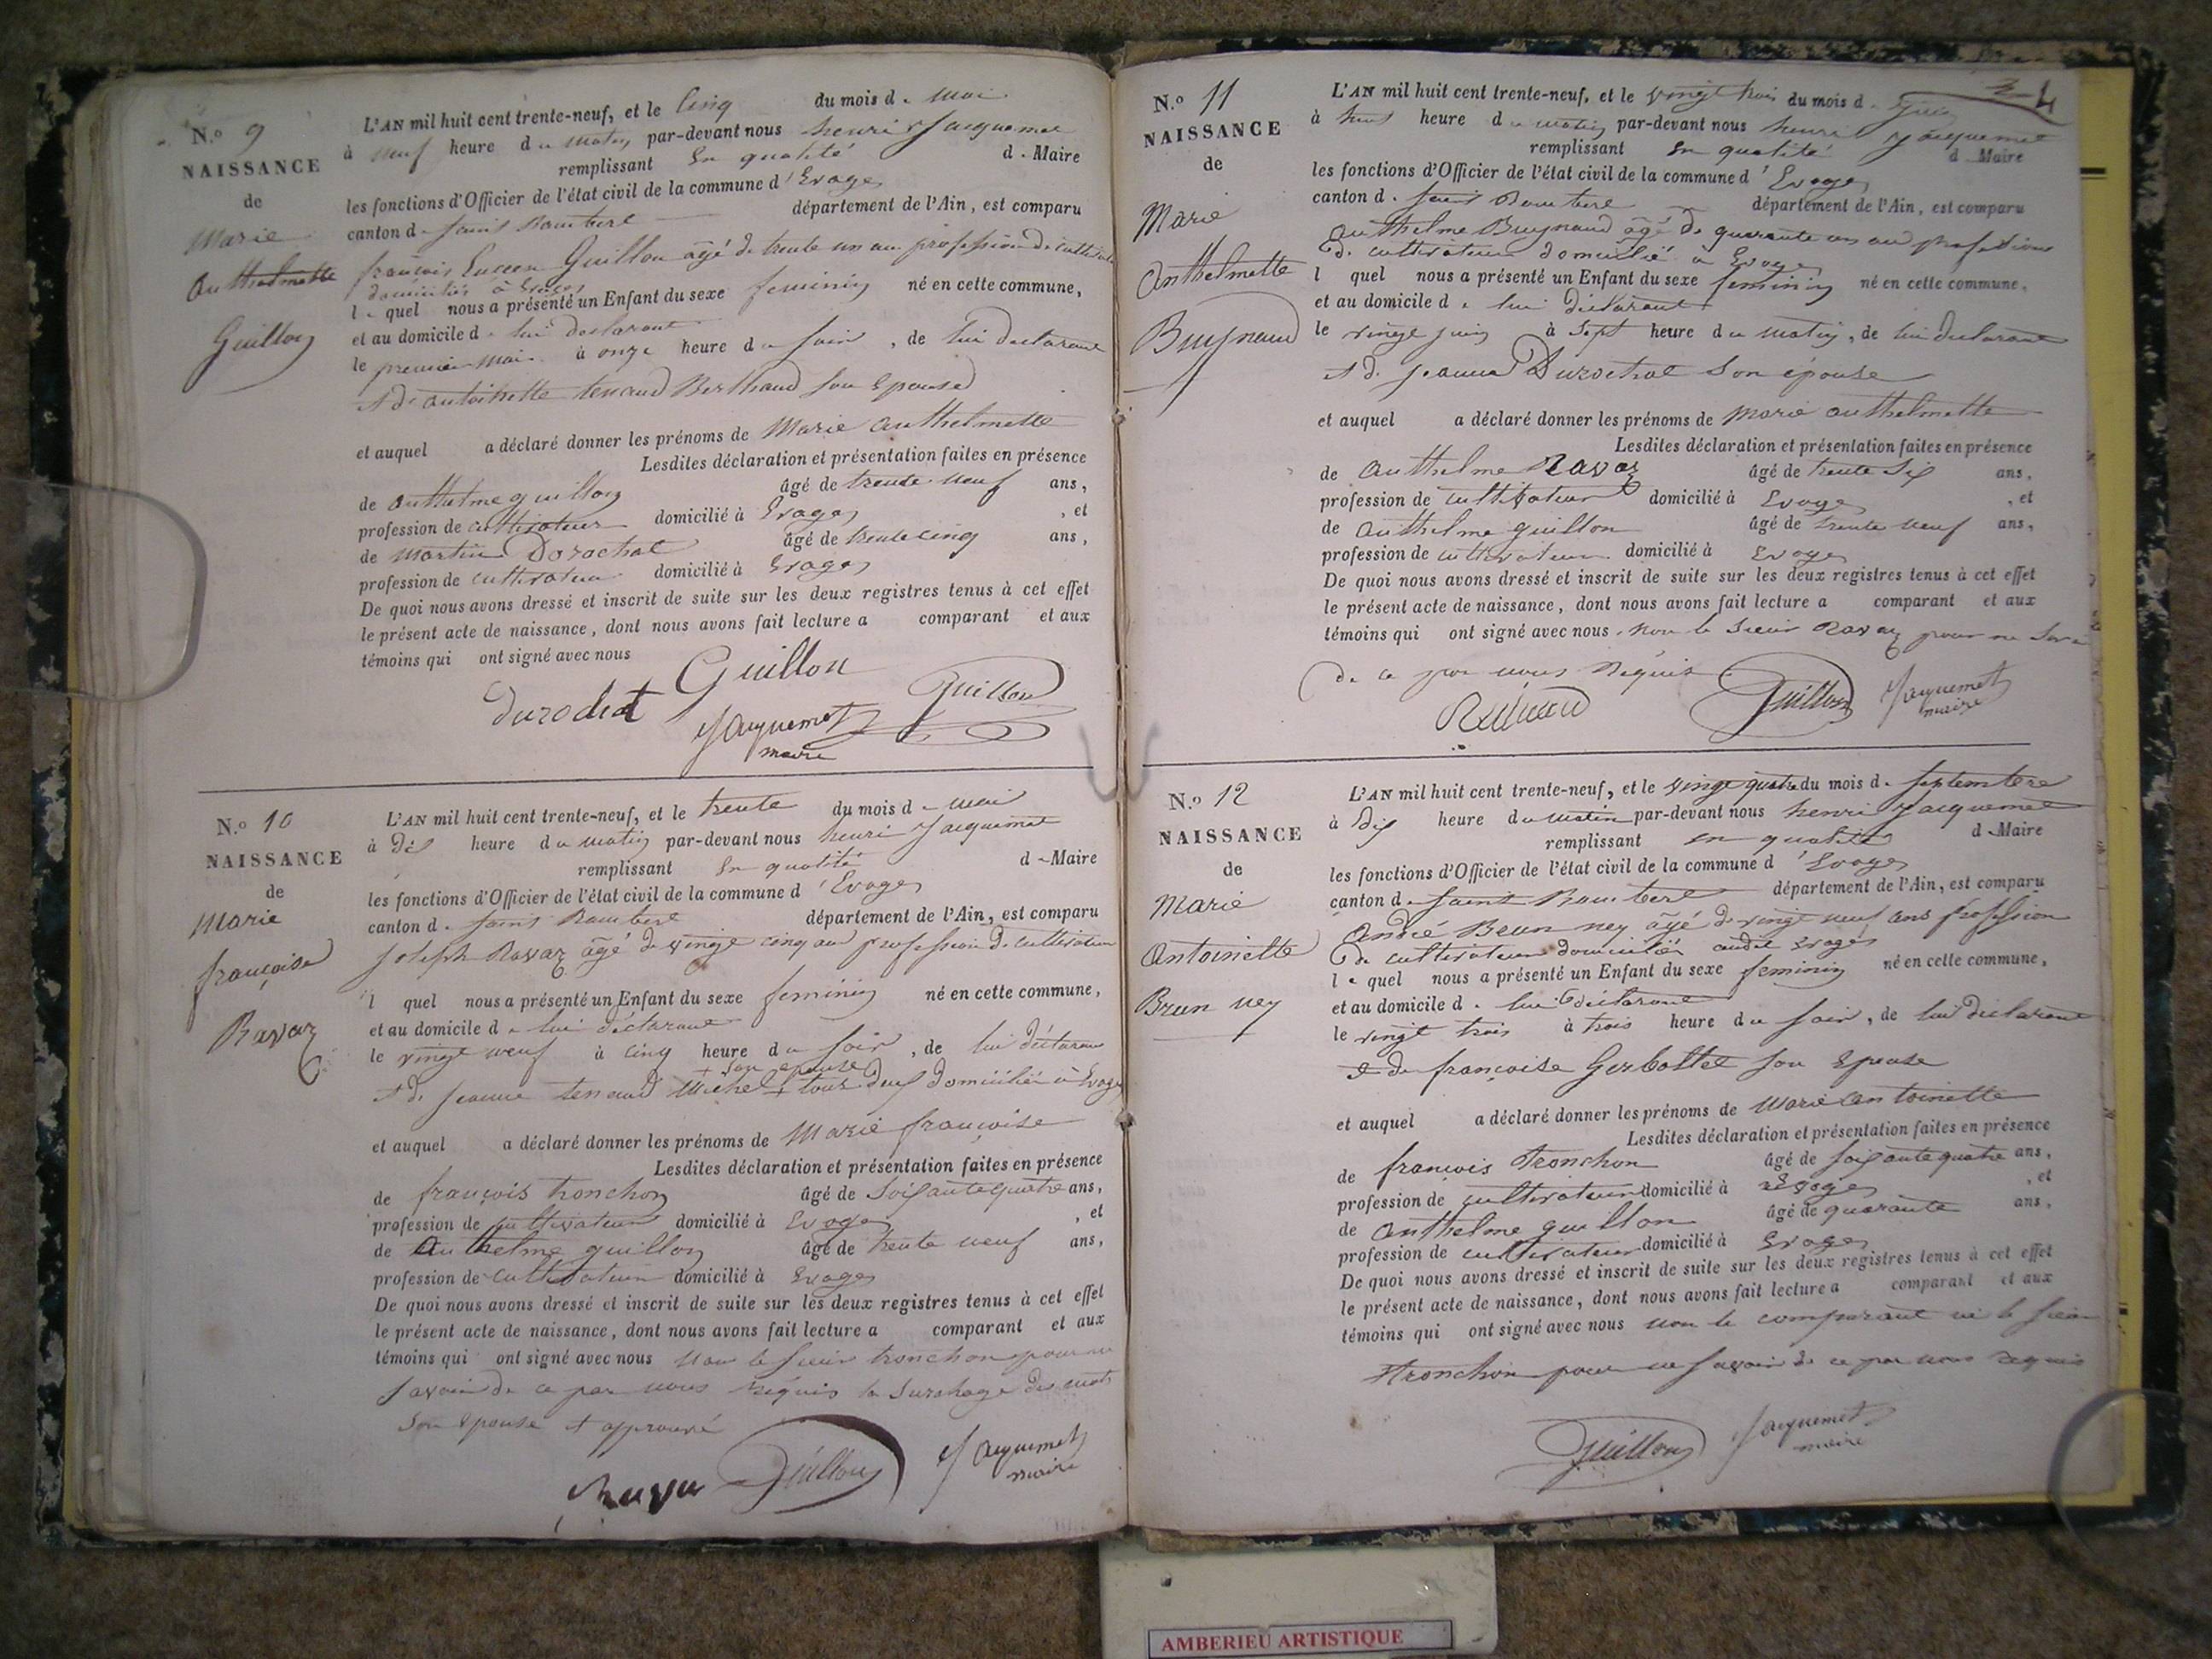 N.o 9
NAISSANCE
de
Marie
Anthelmette
Guillon
L'AN mil huit cent trente-neuf, et le cinq du mois d e mai
à neuf heure d u matin par-devant nous henri Jacquemet
remplissant En qualité d e Maire
les fonctions d'Officier de l'état civil de la commune d' Evoges
canton d e saint Rambert département de l'Ain, est comparu
françois Guillon âgé de trente un ans profession de cultivateur
domicilié à Evoges
l e quel nous a présenté un Enfant du sexe feminin né en cette commune,
et au domicile d e lui declarant
le premier mai à onze heure d u soir, de lui declarant
et de antoinette tenand Berthaud son Epouse
et auquel a déclaré donner les prénoms de Marie anthelmette
Lesdites déclaration et présentation faites en présence
de anthelme guillon âgé de trente neuf ans,
profession de cultivateur domicilié à Evoges, et
de Martin Dorochat âgé de trente cinq ans,
profession de cultivateur domicilié à Evoges
De quoi nous avons dressé et inscrit de suite sur les deux registres tenus à cet effet
le présent acte de naissance, dont nous avons fait lecture a comparant et aux
témoins qui ont signé avec nous
Guillon
Durochat Guillon
Jacquemet
maire
N.o 10
NAISSANCE
de
Marie
françoise
Ravaz
L'AN mil huit cent trente-neuf, et le trente du mois d e mai
à dix heure d u matin par-devant nous henri Jacquemet
remplissant En qualité d e Maire
les fonctions d'Officier de l'état civil de la commune d' Evoges
canton d e saint Rambert département de l'Ain, est comparu
joseph Ravaz âgé de vingt cinq ans profession de cultivateur
l quel nous a présenté un Enfant du sexe feminin né en cette commune,
et au domicile d e lui déclarant
le vingt neuf à cinq heure d u soir, de lui déclarant
+ son epouse
et de jeanne tenand Michel + tous deux domiciliés à Evoges
et auquel a déclaré donner les prénoms de Marie françoise
Lesdites déclaration et présentation faites en présence
de françois tronchon âgé de soixante quatre ans,
profession de cultivateur domicilié à Evoges, et
de Anthelme guillon âgé de trente neuf ans,
profession de cultivateur domicilié à Evoges
De quoi nous avons dressé et inscrit de suite sur les deux registres tenus à cet effet
le présent acte de naissance, dont nous avons fait lecture a comparant et aux
témoins qui ont signé avec nous Non le sieur tronchon pour ne
savoir de ce par nous requis la surchage des mots
son epouse + approuvé
Guillon Jacquemet
maire
N.o 11
NAISSANCE
de
Marie
Anthelmette
Buynaud
L'AN mil huit cent trente-neuf, et le vingt trois du mois d e juin
4
à huit heure d u matin par-devant nous henri Jacquemet
remplissant En qualité d e Maire
les fonctions d'Officier de l'état civil de la commune d' Evoges
canton d e saint Rambert département de l'Ain, est comparu
anthelme Buynaud âgé de quarante un ans profession
de cultivateur domicilié à Evoges
l quel nous a présenté un Enfant du sexe feminin né en cette commune,
et au domicile d e lui déclarant
le vingt juin à sept heure d u matin, de lui declarant
et de jeanne Durochat son épouse
et auquel a déclaré donner les prénoms de Marie anthelmette
Lesdites déclaration et présentation faites en présence
de Anthelme Ravaz âgé de trente six ans,
profession de cultivateur domicilié à Evoges, et
de Anthelme guillon âgé de trente neuf ans,
profession de cultivateur domicilié à Evoges
De quoi nous avons dressé et inscrit de suite sur les deux registres tenus à cet effet
le présent acte de naissance, dont nous avons fait lecture a comparant et aux
témoins qui ont signé avec nous, Non le sieur Ravaz pour ne
de ce par nous Requis
Guillon Jacquemet
maire
N.o 12
NAISSANCE
de
Marie
Antoinette
Brun ney
L'AN mil huit cent trente-neuf, et le vingt quatre du mois d e septembre
à dix heure d u matin par-devant nous henri Jacquemet
remplissant en qualité d e Maire
les fonctions d'Officier de l'état civil de la commune d' Evoges
canton d e saint Rambert département de l'Ain, est comparu
André Brun ney âgé de vingt neuf ans profession
de cultivateur domicilié audit Evoges
l e quel nous a présenté un Enfant du sexe feminin né en cette commune,
et au domicile d e lui déclarant
le vingt trois à trois heure d u soir, de lui declarant
et de françoise Gerbollet son Epouse
et auquel a déclaré donner les prénoms de Marie antoinette
Lesdites déclaration et présentation faites en présence
de françois Tronchon âgé de soixante quatre ans,
profession de cultivateur domicilié à Evoges, et
de Anthelme guillon âgé de quarante ans,
profession de cultivateur domicilié à Evoges
De quoi nous avons dressé et inscrit de suite sur les deux registres tenus à cet effet
le présent acte de naissance, dont nous avons fait lecture a comparant et aux
témoins qui ont signé avec nous non le comparant ni le sieur
tronchon pour ne savoir de ce par nous requis
Guillon Jacquemet
maire
AMBERIEU ARTISTIQUE